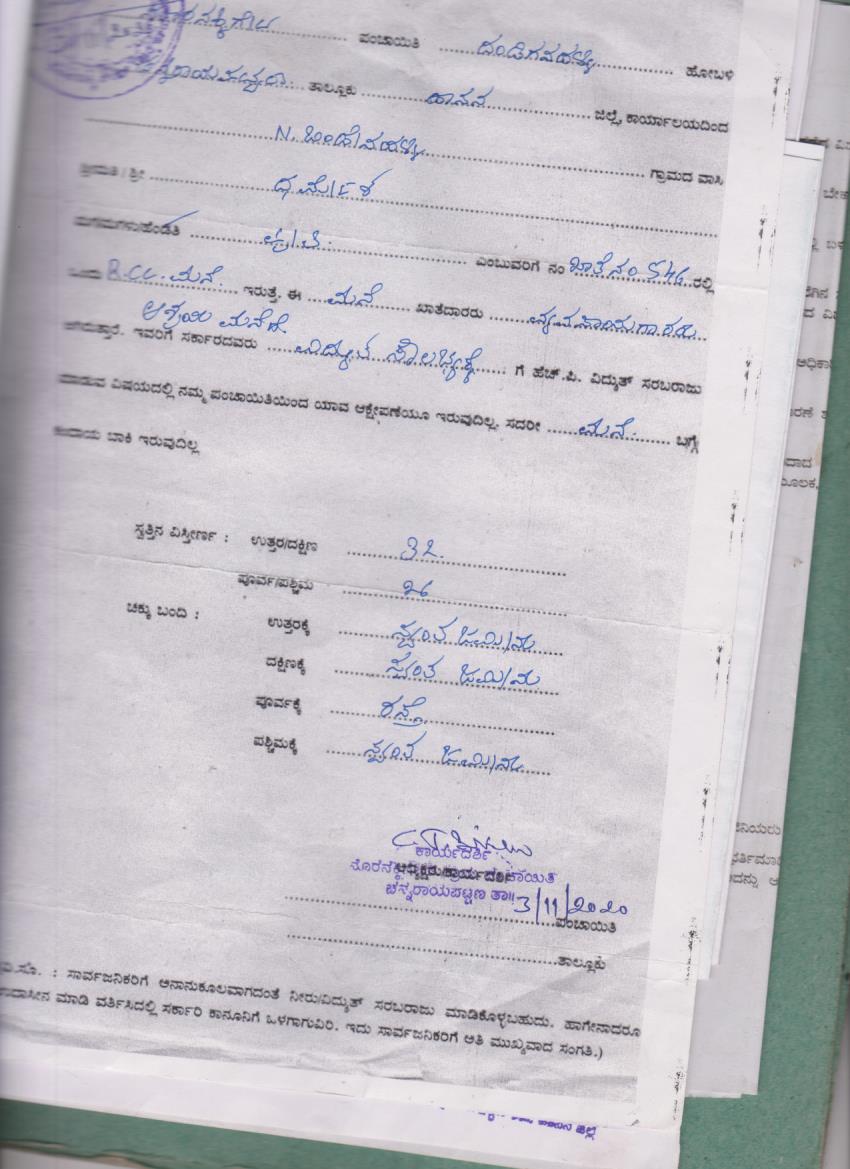 ಪಂಚಾಯಿತಿ ...... ದಂಡಿಗನಹಳ್ಳಿ ...... ಹೋಬಳಿ
ತಾಲ್ಲೂಕು ...... ಹಾಸನ ...... ಜಿಲ್ಲೆ, ಕಾರ್ಯಾಲಯದಿಂದ
N. ಬಂಡೇನಹಳ್ಳಿ ...... ಗ್ರಾಮದ ವಾಸಿ
ಶ್ರೀಮತಿ / ಶ್ರೀ ...... ಧರ್ಮೇಶ
ಮಗ/ಮಗಳು/ಹೆಂಡತಿ ...... ಎಂಬುವರಿಗೆ ನಂ ಖಾತೆ ನಂ 546 ರಲ್ಲಿ
ಒಂದು R.CC. ಮನೆ. ...... ಇರುತ್ತೆ. ಈ .... ಮನೆ .... ಖಾತೆದಾರರು ......
ಆಗಿರುತ್ತಾರೆ. ಇವರಿಗೆ ಸರ್ಕಾರದವರು ...... ವಿದ್ಯುತ್ ಸೌಲಭ್ಯಕ್ಕೆ ...... ಗೆ ಹೆಚ್.ಪಿ. ವಿದ್ಯುತ್ ಸರಬರಾಜು
ಮಾಡುವ ವಿಷಯದಲ್ಲಿ ನಮ್ಮ ಪಂಚಾಯಿತಿಯಿಂದ ಯಾವ ಆಕ್ಷೇಪಣೆಯೂ ಇರುವುದಿಲ್ಲ. ಸದರೀ ...... ಮನೆ. ...... ಬಗ್ಗೆ
ಕಂದಾಯ ಬಾಕಿ ಇರುವುದಿಲ್ಲ
ಸ್ವತ್ತಿನ ವಿಸ್ತೀರ್ಣ : ಉತ್ತರ/ದಕ್ಷಿಣ ...... 32.
ಪೂರ್ವ/ಪಶ್ಚಿಮ ......
ಚಕ್ಕು ಬಂದಿ : ಉತ್ತರಕ್ಕೆ ...... ಸ್ವಂತ ಜಮೀನು
ದಕ್ಷಿಣಕ್ಕೆ ...... ಸ್ವಂತ ಜಮೀನು
ಪೂರ್ವಕ್ಕೆ ...... ರಸ್ತೆ
ಪಶ್ಚಿಮಕ್ಕೆ ...... ಸ್ವಂತ ಜಮೀನು
ಕಾರ್ಯದರ್ಶಿ
ಅಧ್ಯಕ್ಷರು/ಕಾರ್ಯದರ್ಶಿ
ಚನ್ನರಾಯಪಟ್ಟಣ ತಾ॥ 3/11/2020
ಪಂಚಾಯಿತಿ
ತಾಲ್ಲೂಕು
ವಿ.ಸೂ. : ಸಾರ್ವಜನಿಕರಿಗೆ ಅನಾನುಕೂಲವಾಗದಂತೆ ನೀರು/ವಿದ್ಯುತ್ ಸರಬರಾಜು ಮಾಡಿಕೊಳ್ಳಬಹುದು. ಹಾಗೇನಾದರೂ
ಉದಾಸೀನ ಮಾಡಿ ವರ್ತಿಸಿದಲ್ಲಿ ಸರ್ಕಾರಿ ಕಾನೂನಿಗೆ ಒಳಗಾಗುವಿರಿ. ಇದು ಸಾರ್ವಜನಿಕರಿಗೆ ಅತಿ ಮುಖ್ಯವಾದ ಸಂಗತಿ.)